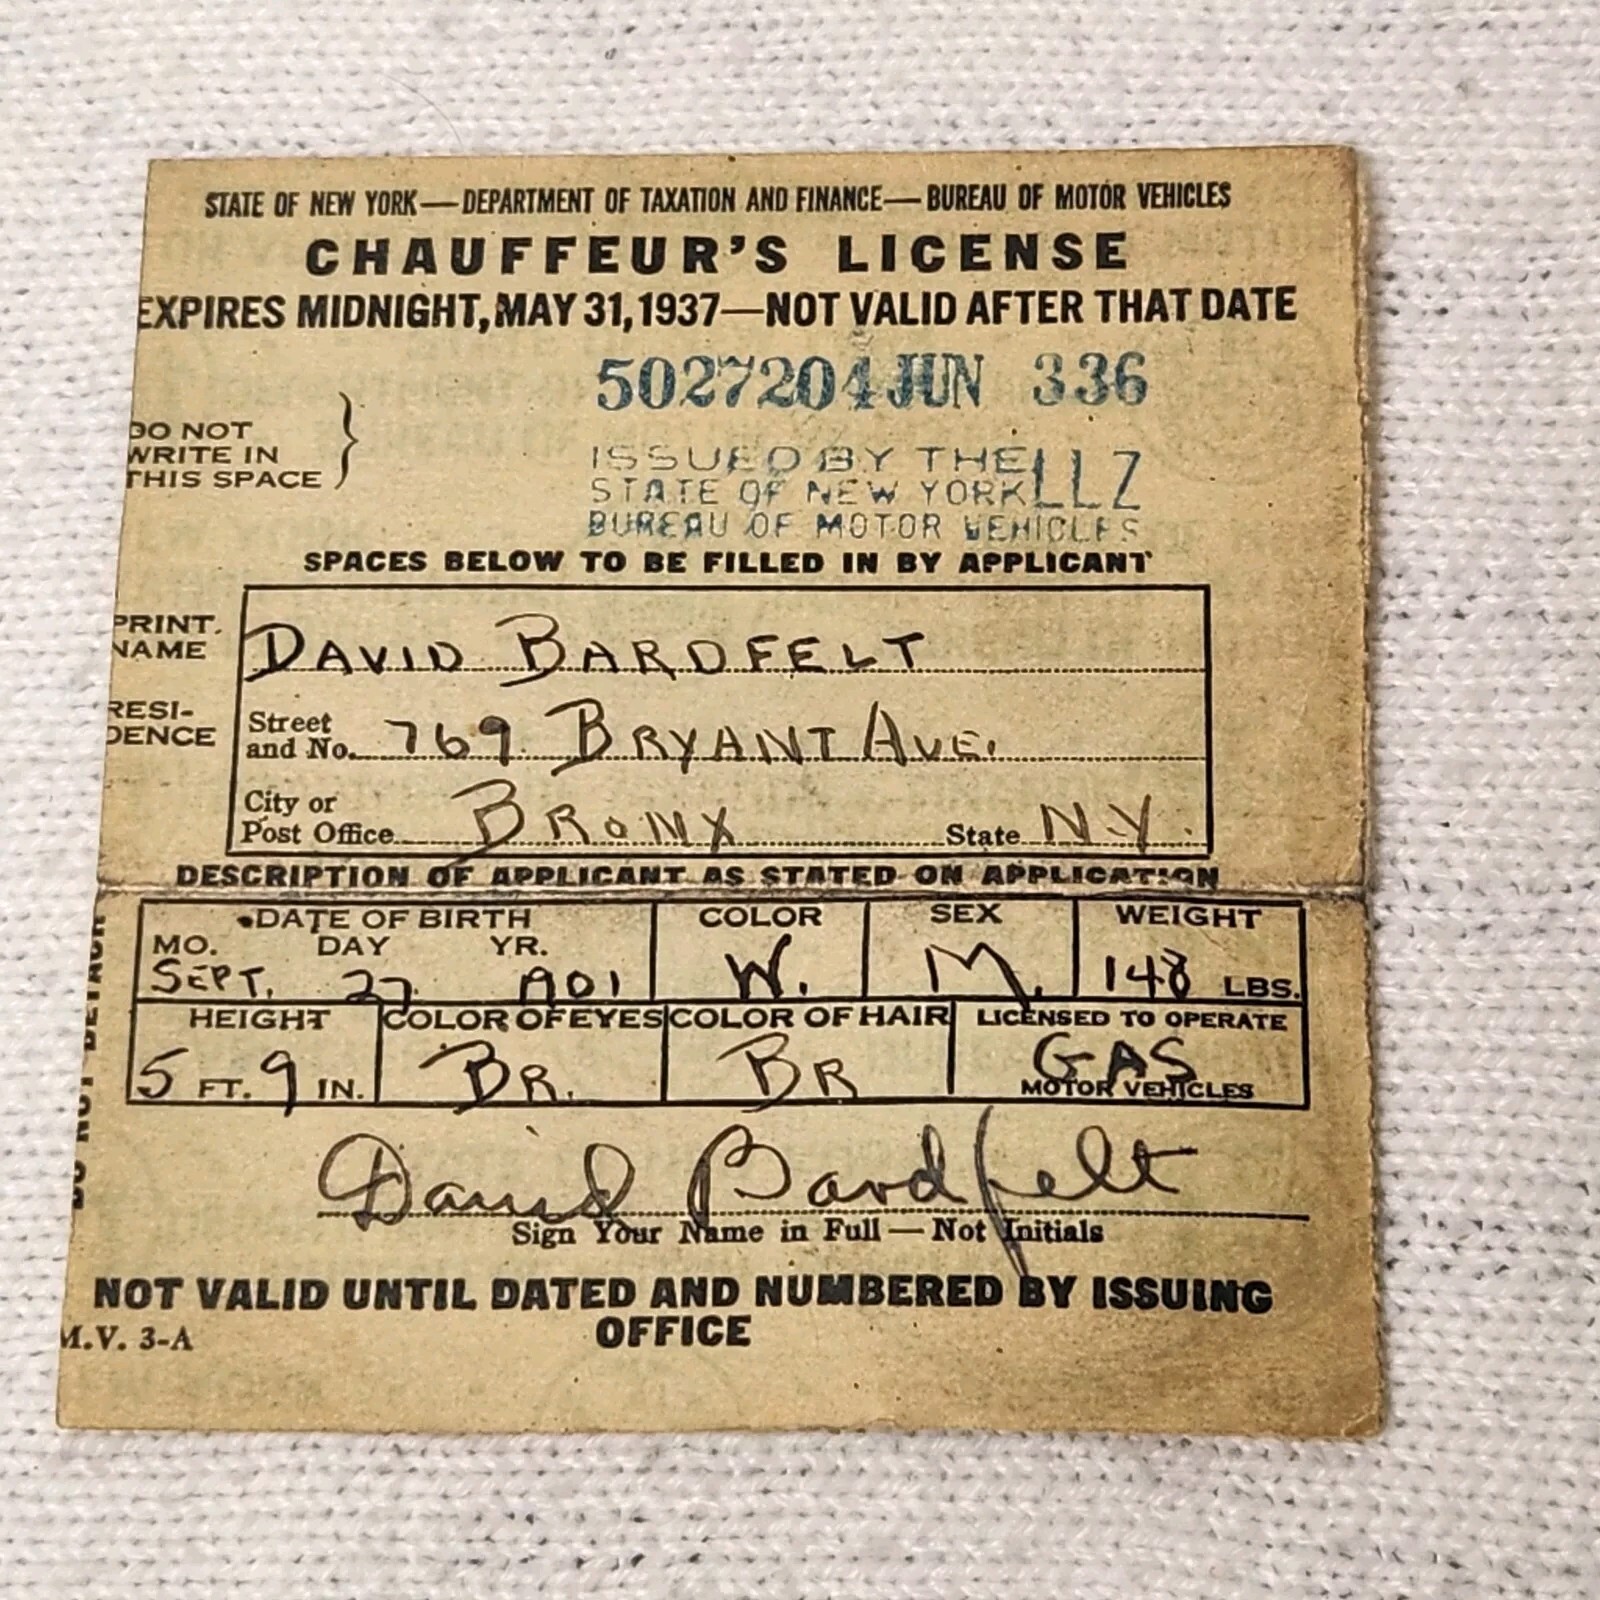 STATE OF NEW YORK—DEPARTMENT OF TAXATION AND FINANCE—BUREAU OF MOTOR VEHICLES
CHAUFFEUR'S LICENSE
EXPIRES MIDNIGHT, MAY 31, 1937—NOT VALID AFTER THAT DATE
5027204 JUN 3 36
DO NOT
WRITE IN
THIS SPACE }
ISSUED BY THE
STATE OF NEW YORK LLZ
BUREAU OF MOTOR VEHICLES
SPACES BELOW TO BE FILLED IN BY APPLICANT
PRINT NAME DAVID BARDFELT
RESIDENCE Street and No. 769 BRYANT AVE.
City or Post Office BRONX State N.Y.
DESCRIPTION OF APPLICANT AS STATED ON APPLICATION
DATE OF BIRTH COLOR SEX WEIGHT
MO. DAY YR.
SEPT. 27 1901 W. M. 148 LBS.
HEIGHT COLOR OF EYES COLOR OF HAIR LICENSED TO OPERATE
5 FT. 9 IN. BR. BR GAS
MOTOR VEHICLES
David Bardfelt
Sign Your Name in Full — Not Initials
NOT VALID UNTIL DATED AND NUMBERED BY ISSUING
OFFICE
M.V. 3-A
DO NOT DETACH